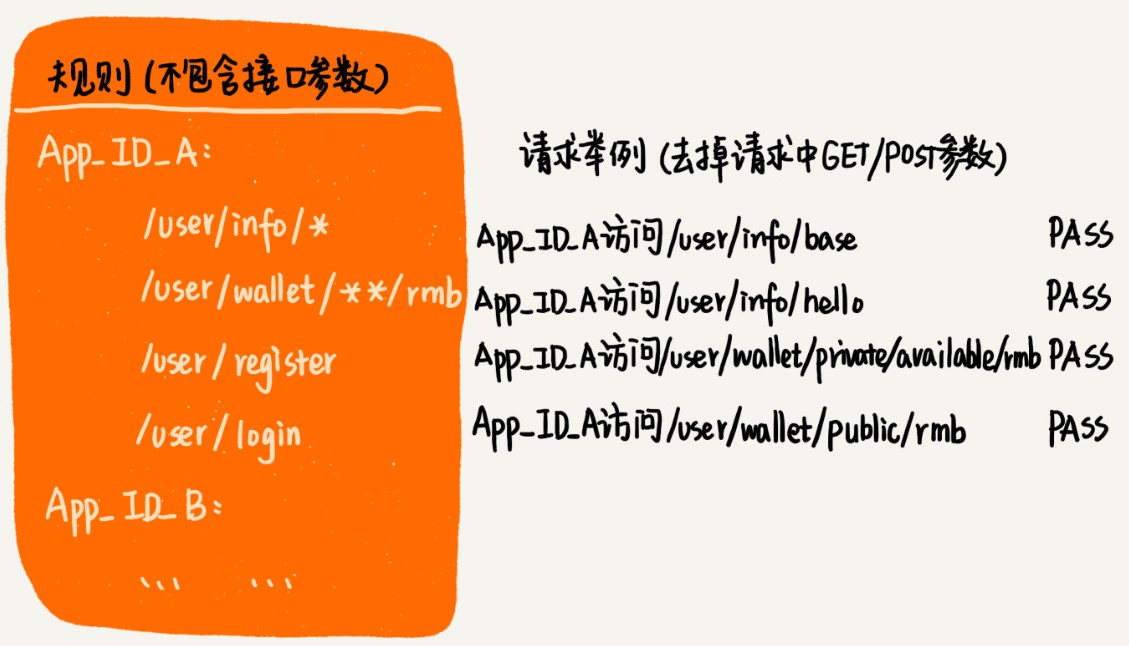 规则(不包含接口参数)
App_ID_A:
/user/info/*
/user/wallet/**/rmb
/user/register
/user/login
App_ID_B:
... ...
请求举例(去掉请求中GET/POST参数)
App_ID_A访问/user/info/base PASS
App_ID_A访问/user/info/hello PASS
App_ID_A访问/user/wallet/private/available/rmb PASS
App_ID_A访问/user/wallet/public/rmb PASS